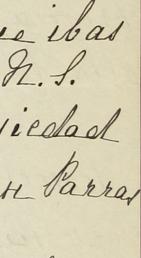 ibas
N. S.
iedad
n Parras